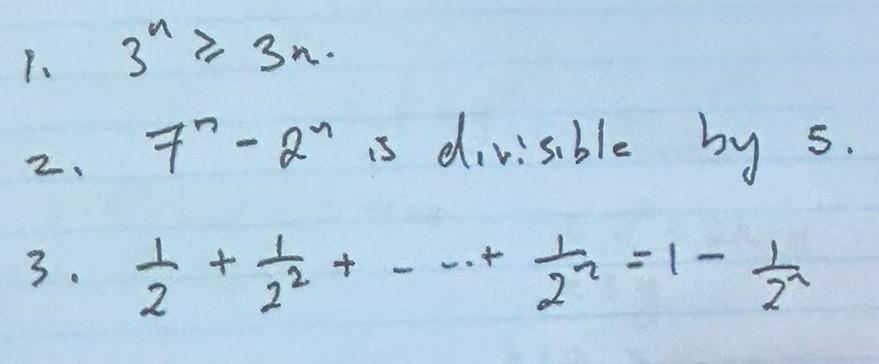 1. 3ⁿ ≥ 3n.
2. 7ⁿ - 2ⁿ is divisible by 5.
3. 1/2 + 1/2² + - - ..+ 1/2ⁿ = 1 - 1/2ⁿ